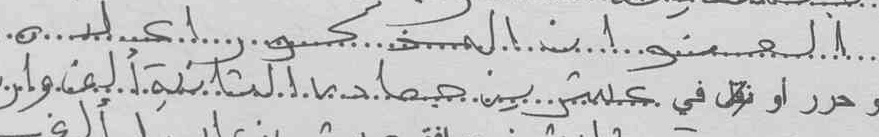 العنوان المذكور اعلاه
و حرر او نقل في عشرين جمادى الثانية ألف وار